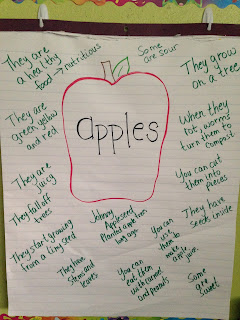 They are
a healthy
food → nutritious
Some
are sour
They grow
on a tree
They are
green, yellow
and red
apples
When they
rot, worms
turn them to
compost
You can cut
them into
pieces
They are
juicy
They fall off
trees
They have
seeds inside
Johnny
Appleseed
Planted apple trees
long ago.
You can
use
them to
make
apple
juice.
They start growing
from a tiny seed
They have
stems and
leaves
You can
eat them
with caramel
and peanuts
Some
are
sweet